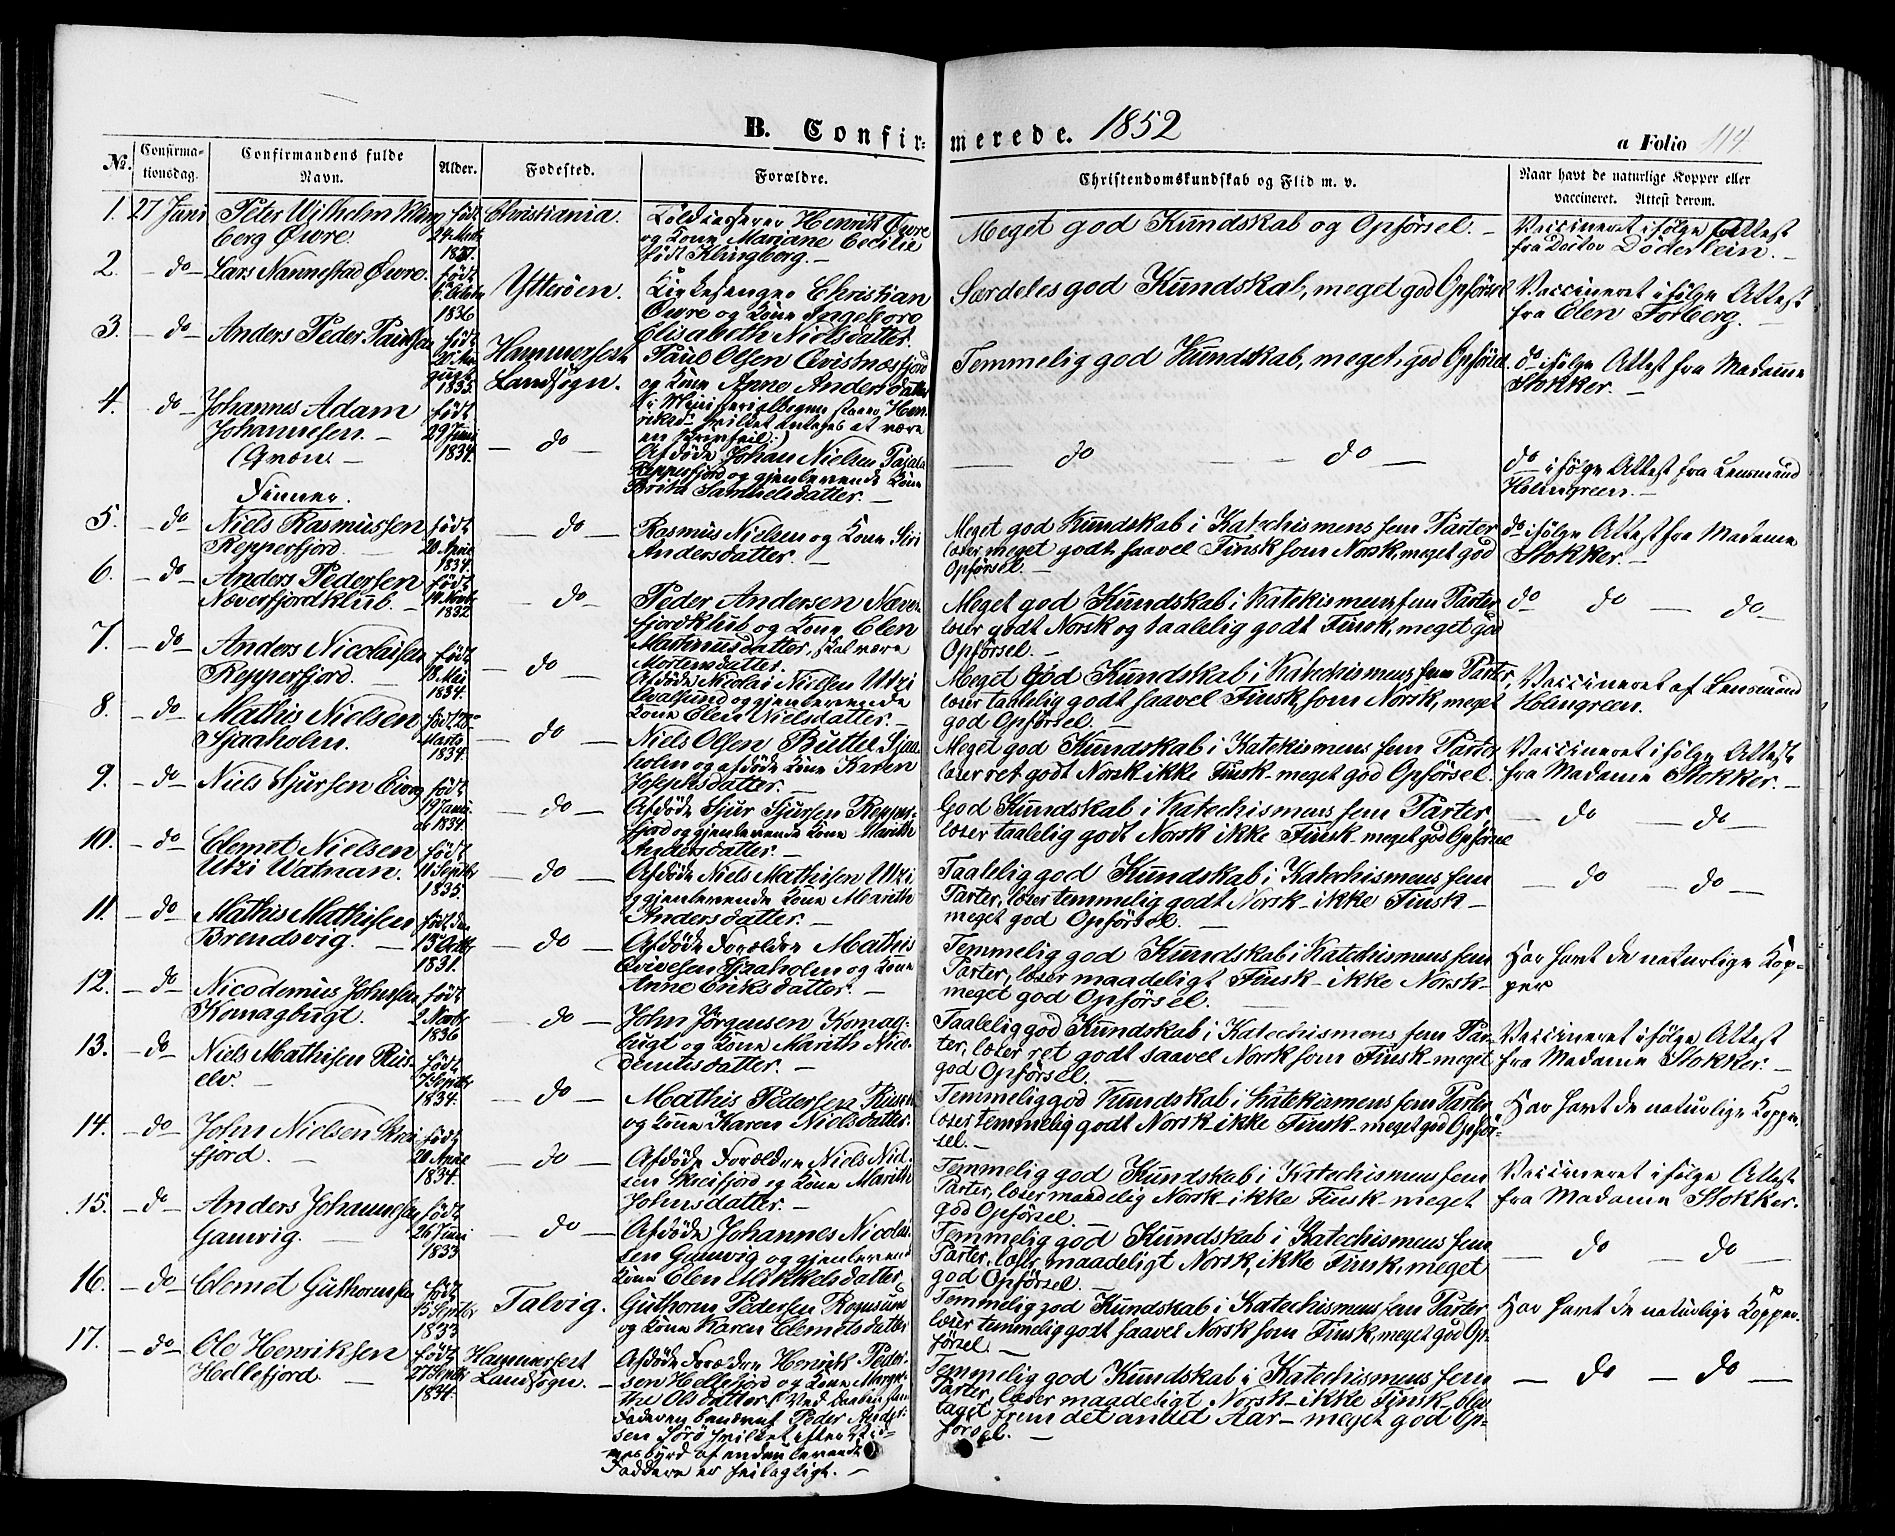 B. Confirmerede. 1852
a Folio 114
No. Confirmationsdag. Confirmandens fulde Navn. Alder. Fødested. Forældre. Christendomskundskab og Flid m. v. Naar havt de naturlige Kopper eller vaccineret. Attest derom.
1. 27 Juni Peter Wilhelm Klingberg Øwre. født 24 Marts 1837. Christiania.
Henrik Øwre og Kone Mariane Cecilie født Klingberg. –
Meget god Kundskab og Opførsel. –
Vaccineret ifølge Attest fra Doctor Döderlein. –
2. – do – Lars Nannestad Øwre. født 1836 Ytterøen.
Kirkesanger Christian Øwre og Kone Ingeborg Elisabeth Nielsdatter.
Særdeles god Kundskab, meget god Opførsel
Vaccineret ifølge Attest fra Elen Forberg. –
3. – do – Anders Peder Paulsen født August 1835. Hammerfest Landsogn.
Paul Olsen og Kone Anne Andersdatter (i Ministerialbogen staaer Henriksd. hvilket antages at være en Skrivfeil.)
Temmelig god Kundskab, meget god Opførsel
do ifølge Attest fra Madame Stokker. –
4. – do – Johannes Adam Johannesen. – (Qvæn. – født 29 Juni 1834. – do –
Afdøde Johan Nielsen Pajala Repperfjord og gjenlevende Kone Brita Samuelsdatter. –
– do – – do –
do ifølge Attest fra Lensmand Holmgreen. –
Finner.
5. – do – Niels Rasmussen Repperfjord. født 20 April 1834. – do –
Rasmus Nielsen og Kone Siri Andersdatter. –
Meget god Kundskab i Katechismens fem Parter læser meget godt saavel Finsk som Norsk, meget god Opførsel. –
do ifølge Attest fra Madame Stokker. –
6. – do – Anders Pedersen Næverfjordklub. – født 14 Novbr 1832 – do –
Peder Andersen Næverfjordklub og Kone Elen Mathiusdatter, skal være Mortensdatter.
Meget god Kundskab i Katekismens fem Parter læser godt Norsk og taalelig godt Finsk, meget god Opførsel. –
do do – do –
7. – do – Anders Nicolaisen Repperfjord. – født 18 Mai 1834. – do –
Afdøde Nicolai Nielsen Utzi Qvalsund og gjenlevende Kone Elen Nielsdatter. –
Meget god Kundskab i Katechismens fem Parter læser taalelig godt saavel Finsk som Norsk, meget god Opførsel. –
Vaccineret af Lensmand Holmgreen.
8. – do – Mathis Nielsen Sjaaholm. født Marts 1834. – do –
Niels Olsen Butter Sjaaholm og afdøde Kone Karen Josephsdatter. –
Meget god Kundskab i Katekismens fem Parter læser ret godt Norsk ikke Finsk – meget god Opførsel.
Vaccineret ifølge Attest fra Madame Stokker. –
9. – do – Niels Sjursen født 19 Januar 1834. – do –
Afdøde Sjur Sjursen Repperfjord og gjenlevende Kone Marith Andersdatter. –
God Kundskab i Katechismens fem Parter, læser taalelig godt Norsk ikke Finsk – meget god Opførsel
– do – do –
10. – do – Clemet Nielsen Utzi Watnan. født 11 Septbr 1835. – do –
Afdøde Niels Mathisen Utzi og gjenlevende Kone Marith Andersdatter. –
Taalelig god Kundskab i Katechismens fem Parter, læser temmelig godt Norsk – ikke Finsk – meget god Opførsel. –
– do – do –
11. – do – Mathis Mathisen Brendsvig. – født den 1831. – do –
Afdøde Forældre Mathis Sjaaholm og Kone Anne Eriksdatter. –
Temmelig god Kundskab i Katechismens fem Parter, læser maadeligt Finsk – ikke Norsk – meget god Opførsel. –
Har havt de naturlige Kopper
12. – do – Nicodemus Johnsen Komagbugt. født 2 Novbr 1836 – do –
John Jørgensen Komagbugt og Kone Marith Nicodemusdatter. –
Taalelig god Kundskab i Katechismens fem Parter, læser ret godt saavel Norsk som Finsk – meget god Opførsel. –
Vaccineret ifølge Attest fra Madame Stokker. –
13. – do – Niels Mathisen Ruselv. – født 7 Septbr 1834. – do –
Mathis Pedersen Ruselv og Kone Karen Nielsdatter.
Temmelig god Kundskab i Katekismens fem Parter læser temmelig godt Norsk ikke Finsk – meget god Opførsel. –
Har havt de naturlige Kopper.
14. – do – John Nielsen Skreifjord. – født 20 April 1834. – do –
Afdøde Forældre Niels Nielsen Skreifjord og Kone Marith Johnsdatter. –
Temmelig god Kundskab i Katechismens fem Parter, læser maadelig Norsk – ikke Finsk – meget god Opførsel. –
Vaccineret ifølge Attest fra Madame Stokker.
15. – do – Anders Johannesen Gamvig. – født 26 Juni 1833 – do –
Afdøde Johannes Nicolaisen Gamvig og gjenlevende Kone Elen Mikkelsdatter.
Temmelig god Kundskab i Katechismens fem Parter, læser maadeligt Norsk, ikke Finsk, meget god Opførsel. –
– do – do –
16. – do – Clemet Guthormsen født 15 Septbr 1833 Talvig.
Guthorm Pedersen Rognsund og Kone Karen Clemetsdatter
Temmelig god Kundskab i Katechismens fem Parter læser temmelig godt saavel Norsk som Finsk, meget god Opførsel. –
Har havt de naturlige Kopper.
17. – do – Ole Henriksen Hellefjord. – født 27 Septbr 1834. Hammerfest Landsogn. –
Afdøde Forældre Henrik Pedersen Hellefjord og Kone Margrethe Olsdatter (Ved Daaben er Faderen benævnt Peder Andersen Sørø hvilket efter Vidnesbyrd af endnu levende Faddere er feilagtigt. –
Temmelig god Kundskab i Katechismens fem Parter, læser maadeligt Norsk – ikke Finsk – blev taget frem det andet Aar – meget god Opførsel. –
– do – do –